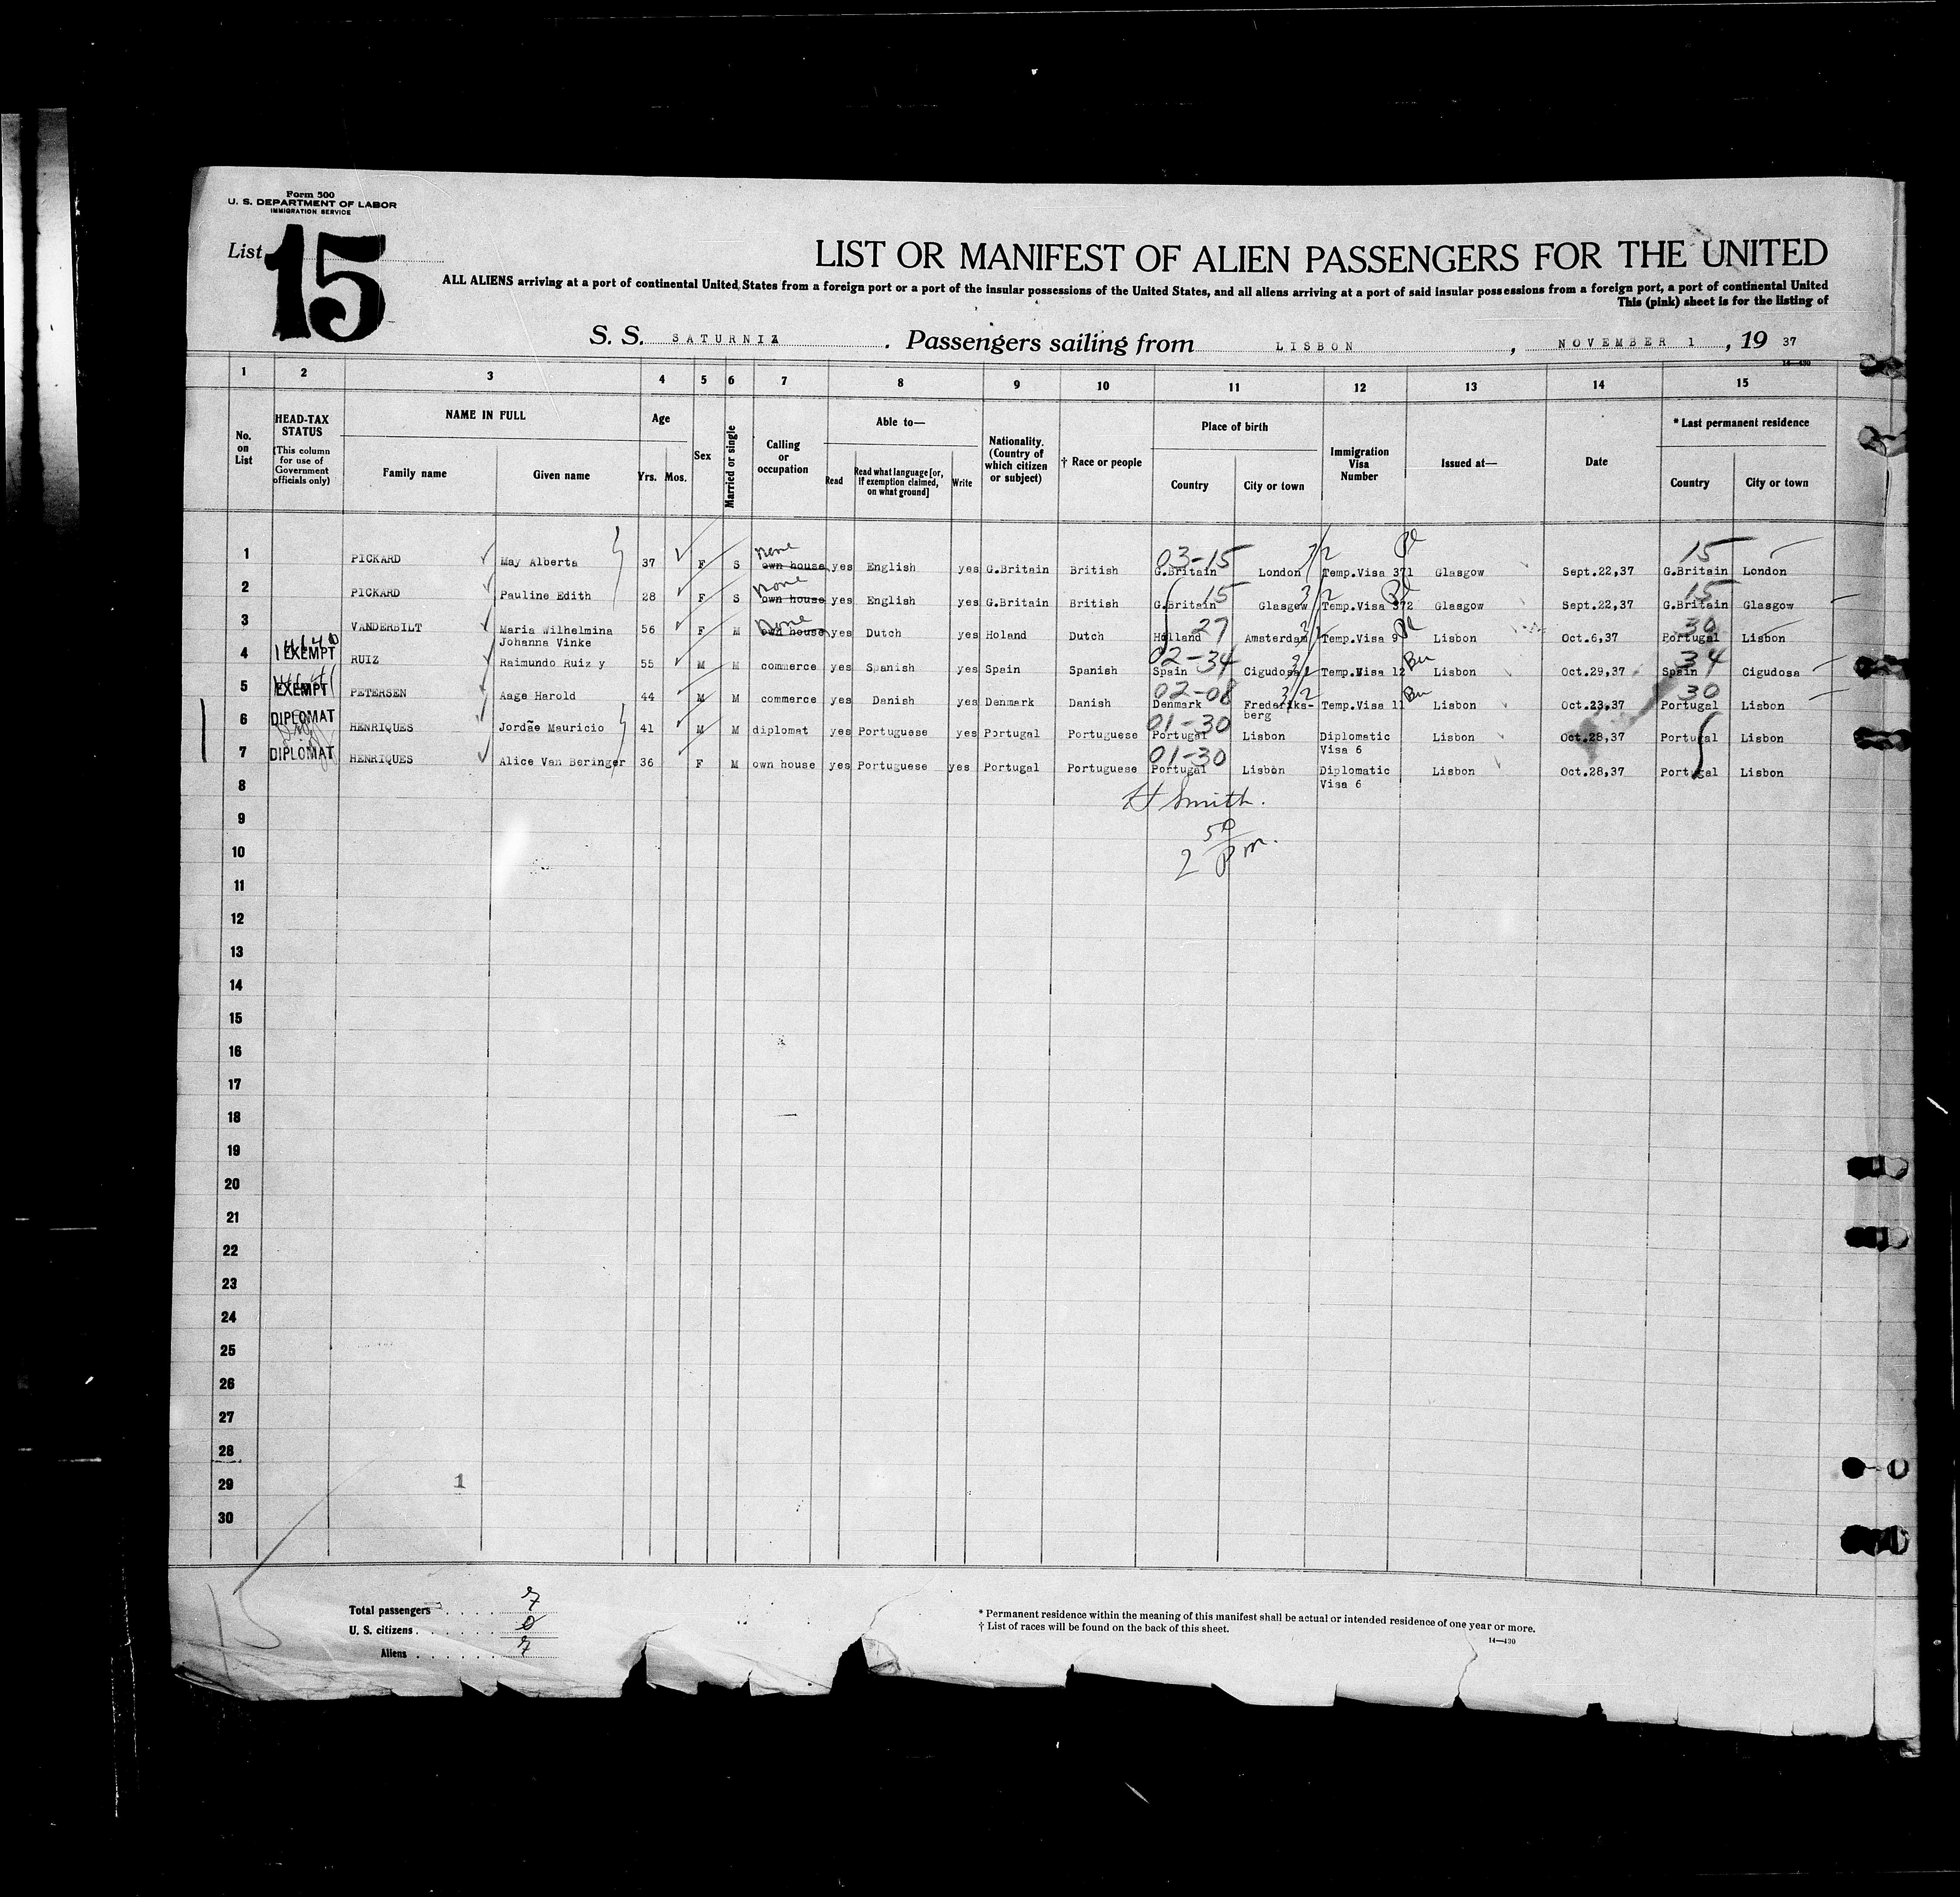 Form 500
U. S. DEPARTMENT OF LABOR
IMMIGRATION SERVICE
List 15
LIST OR MANIFEST OF ALIEN PASSENGERS FOR THE UNITED
ALL ALIENS arriving at a port of continental United States from a foreign port or a port of the insular possessions of the United States, and all aliens arriving at a port of said insular possessions from a foreign port, a port of continental United
This (pink) sheet is for the listing of
S. S. SATURNIA . Passengers sailing from LISBON , NOVEMBER 1 , 19 37
14—430
1 2 3 4 5 6 7 8 9 10 11 12 13 14 15
No. on List
HEAD-TAX STATUS (This column for use of Government officials only)
NAME IN FULL
Family name Given name
Age
Yrs. Mos.
Sex
Married or single
Calling or occupation
Able to—
Read Read what language [or, if exemption claimed, on what ground] Write
Nationality. (Country of which citizen or subject)
† Race or people
Place of birth
Country City or town
Immigration Visa Number
Issued at—
Date
* Last permanent residence
Country City or town
none 03-15 3/2 15
1 PICKARD May Alberta 37 F S own house yes English yes G.Britain British G.Britain London Temp.Visa 371 Glasgow Sept.22,37 G.Britain London
none 15 3/2 15
2 PICKARD Pauline Edith 28 F S own house yes English yes G.Britain British G.Britain Glasgow Temp.Visa 372 Glasgow Sept.22,37 G.Britain Glasgow
none 27 30
3 VANDERBILT Maria Wilhelmina Johanna Vinke 56 F M own house yes Dutch yes Holand Dutch Holland Amsterdam Temp.Visa 9 Lisbon Oct.6,37 Portugal Lisbon
02-34 34
4 EXEMPT RUIZ Raimundo Ruiz y 55 M M commerce yes Spanish yes Spain Spanish Spain Cigudosa Temp.Visa 12 Lisbon Oct.29,37 Spain Cigudosa
02-08 3/2 30
5 EXEMPT PETERSEN Aage Harold 44 M M commerce yes Danish yes Denmark Danish Denmark Frederiks-berg Temp.Visa 11 Lisbon Oct.23,37 Portugal Lisbon
01-30
6 DIPLOMAT HENRIQUES Jordãe Mauricio 41 M M diplomat yes Portuguese yes Portugal Portuguese Portugal Lisbon Diplomatic Visa 6 Lisbon Oct.28,37 Portugal Lisbon
01-30
7 DIPLOMAT HENRIQUES Alice Van Beringer 36 F M own house yes Portuguese yes Portugal Portuguese Portugal Lisbon Diplomatic Visa 6 Lisbon Oct.28,37 Portugal Lisbon
8
H Smith.
9
2 50 pm.
10
11
12
13
14
15
16
17
18
19
20
21
22
23
24
25
26
27
28
29 1
30
15
Total passengers . . . . . 7
U. S. citizens . . . . . . 0
Aliens . . . . . . 7
* Permanent residence within the meaning of this manifest shall be actual or intended residence of one year or more.
† List of races will be found on the back of this sheet.
14—430